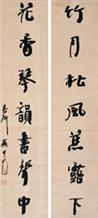 竹月松風蕉露下
花香琴韻書聲中